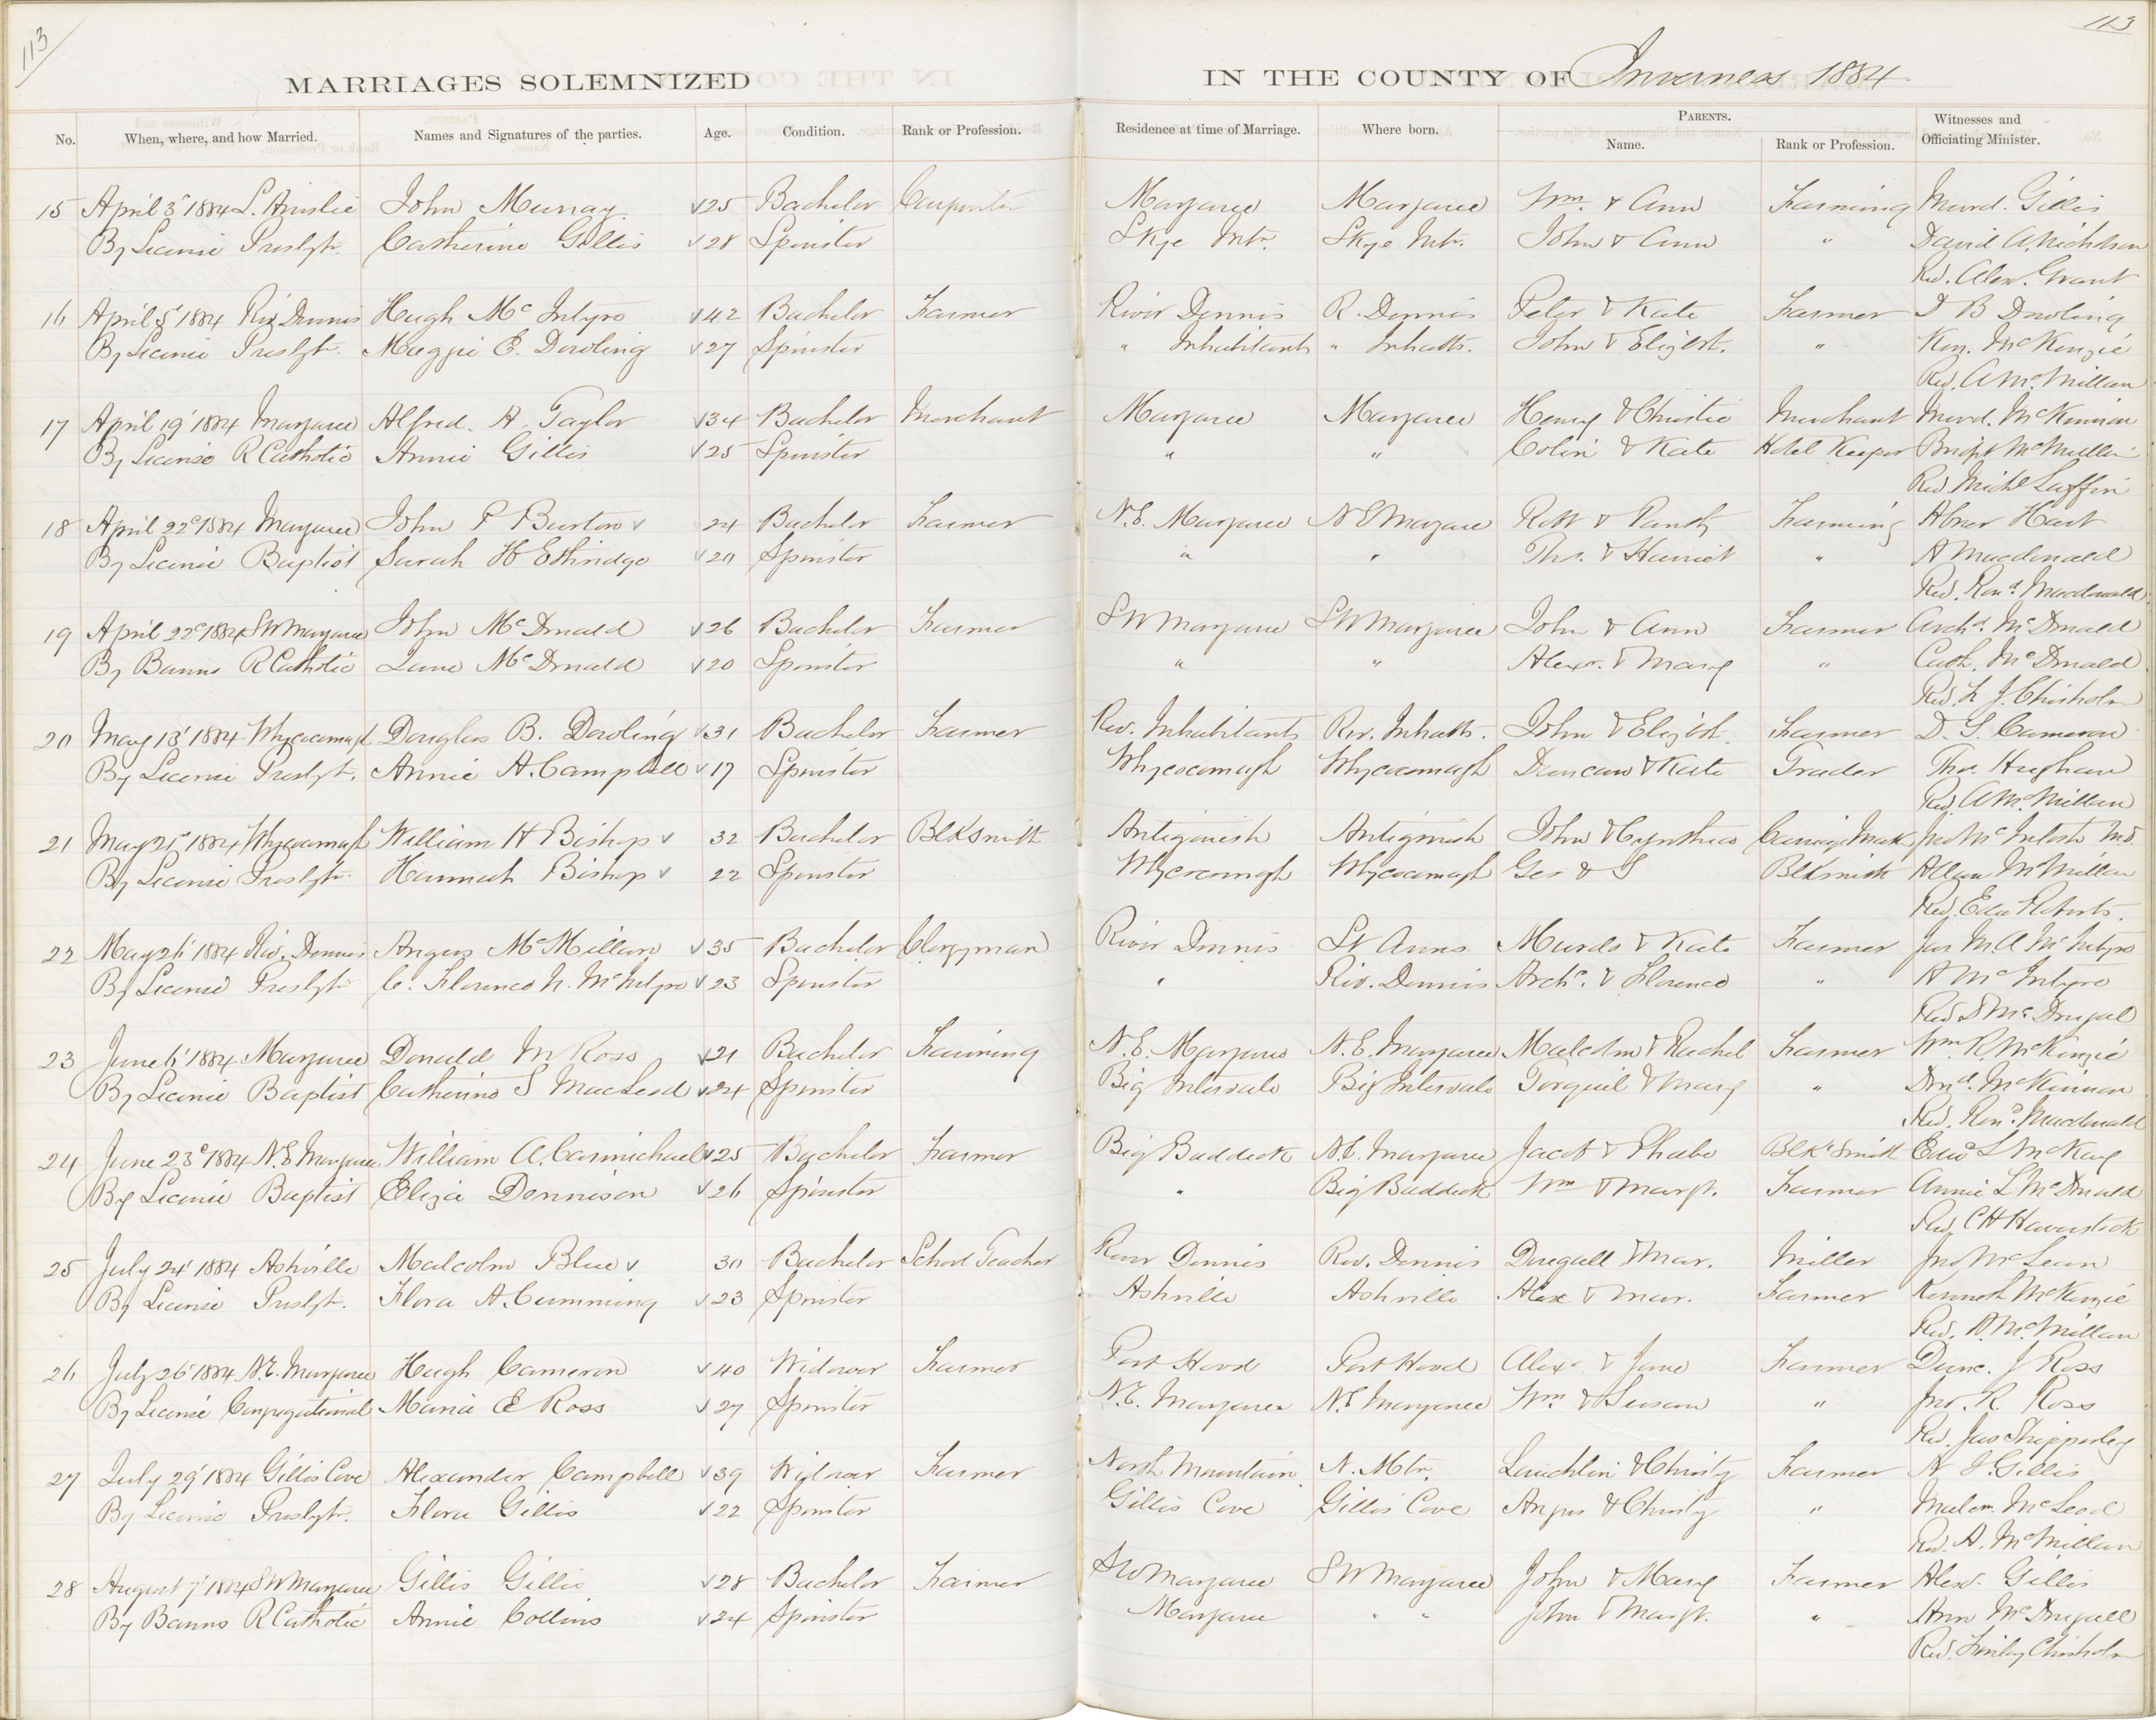 113
113
MARRIAGES SOLEMNIZED IN THE COUNTY OF Inverness 1884.
No. When, where, and how Married. Names and Signatures of the parties. Age. Condition. Rank or Profession. Residence at time of Marriage. Where born. PARENTS. Name. Rank or Profession. Witnesses and Officiating Minister.
15 April 3' 1884 L. Ainslie John Murray √25 Bachelor Carpenter Margaree Margaree Wm. & Ann Farming Murd. Gillis
By License Presbyt. Catherine Gillis √28 Spinster Skye Mtn. Skye Mtn. John & Ann " David A. Nicholson
Rev. Alex. Grant
16 April 8' 1884 Riv. Dennis Hugh McIntyre √42 Bachelor Farmer River Dennis R. Dennis Peter & Kate Farmer D B Dowling
By License Presbyt. Maggie E. Dowling √27 Spinster " Inhabitants " Inhatts. John & Elizbt. " Ken. McKenzie
Rev. A McMillan
17 April 19' 1884 Margaree Alfred. A. Taylor √34 Bachelor Merchant Margaree Margaree Henry & Christie Merchant Murd. McKinnon
By License R Catholic Annie Gillis √25 Spinster " " Colin & Kate Hotel Keeper Bridgt McMullin
Rev Michl Laffin
18 April 22d 1884 Margaree John P Burton √ 24 Bachelor Farmer N.E. Margaree N E Margaree Robt & Farming Abner Hart
By License Baptist Sarah H Ethridge √20 Spinster " " Thos. & Harriet " A Macdonald
Rev. Rond. Macdonald
19 April 22d 1884 S W Margaree John McDonald √26 Bachelor Farmer S W Margaree S W Margaree John & Ann Farmer Archd. McDonald
By Banns R Catholic Jane McDonald √20 Spinster " " Alexr. & Mary " Cath. McDonald
Rev. F. J. Chisholm
20 May 13' 1884 Whycocomagh Douglas B. Dowling √31 Bachelor Farmer Riv. Inhabitants Riv. Inhatts. John & Elizbt. Farmer D. G. Cameron
By License Presbyt. Annie A. Campbell √17 Spinster Whycocomagh Whycocomagh Duncan & Kate Trader Thos. Hughan
Rev. A McMillan
21 May 21' 1884 Whycocomagh William H Bishop √ 32 Bachelor Blksmith Antigonish Antigonish John & Cynthia Carriage Maker Jno McIntosh M.D.
By License Presbyt. Hannah Bishop √ 22 Spinster Whycocomagh Whycocomagh Geo & S Blksmith Allan McMillan
Rev. Edw Roberts.
22 May 26' 1884 Riv. Dennis Angus McMillan √35 Bachelor Clergyman River Dennis St Anns Murdo & Kate Farmer Jas M. A. McIntyre
By License Presbyt. C. Florence N. McIntyre √23 Spinster " Riv. Dennis Archd. & Florence " A McIntyre
Rev D McDougal
23 June 6' 1884 Margaree Donald M Ross √21 Bachelor Farming N.E. Margaree N.E. Margaree Malcolm & Rachel Farmer Wm. R. McKenzie
By License Baptist Catherine S MacLeod √24 Spinster Big Intervale Big Intervale Torquil & Mary " Dond. McKinnon
Rev. Rond. Macdonald
24 June 23d 1884 N.E Margaree William A. Carmichael √25 Bachelor Farmer Big Baddeck N.E. Margaree Jacob & Phebe Blk Smith Edwd L McKay
By License Baptist Eliza Dennison √26 Spinster " Big Baddeck Wm & Margt. Farmer Annie L McDonald
Rev. C H Haverstock
25 July 24' 1884 Ashville Malcolm Blue √ 30 Bachelor School Teacher River Dennis Riv. Dennis Dugall & Mar. Miller Jno McLean
By License Presbyt. Flora A. Cumming √23 Spinster Ashville Ashville Alex & Mar. Farmer Kenneth McKenzie
Rev. A. McMillan
26 July 26' 1884 N.E. Margaree Hugh Cameron √40 Widower Farmer Port Hood Port Hood Alexr & Jane Farmer Dunc. J Ross
By License Congregational Maria E Ross √27 Spinster N.E. Margaree N.E Margaree Wm. & Susan " Jno. R. Ross
Rev. Jas Shipperley
27 July 29' 1884 Gillis Cove Alexander Campbell √39 Widower Farmer North Mountain N. Mtn. Lauchlin & Christy Farmer A J. Gillis
By License Presbyt. Flora Gillis √22 Spinster Gillis Cove Gillis Cove Angus & Christy " Malcm. McLeod
Rev. A. McMillan
28 August 7' 1884 S W Margaree Gillis Gillis √28 Bachelor Farmer S W Margaree S W Margaree John & Mary Farmer Alexr. Gillis
By Banns R Catholic Annie Collins √24 Spinster Margaree " " John & Margt. " Ann McDougall
Rev. Finlay Chisholm